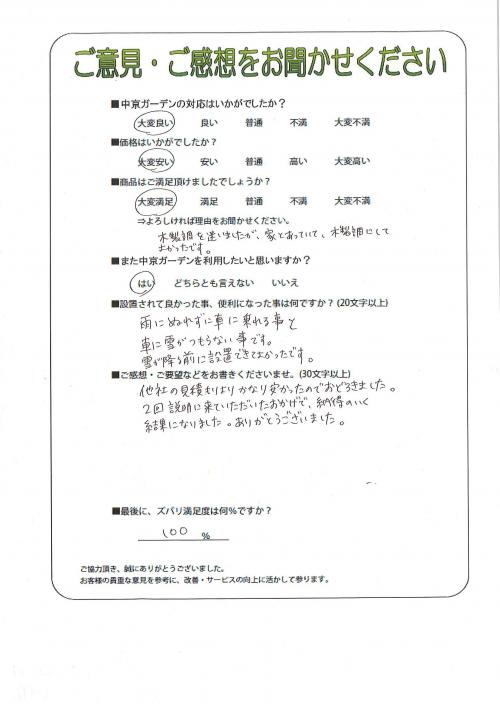 ご意見・ご感想をお聞かせください
■中京ガーデンの対応はいかがでしたか？
大変良い 良い 普通 不満 大変不満
■価格はいかがでしたか？
大変安い 安い 普通 高い 大変高い
■商品はご満足頂けましたでしょうか？
大変満足 満足 普通 不満 大変不満
⇒よろしければ理由をお聞かせください。
木製調を迷いましたが、家とあっていて、木製調にして
よかったです。
■また中京ガーデンを利用したいと思いますか？
はい どちらとも言えない いいえ
■設置されて良かった事、便利になった事は何ですか？(20文字以上)
雨にぬれずに車に乗れる事と
車に雪がつもらない事です。
雪が降る前に設置できてよかったです。
■ご感想・ご要望などをお書きくださいませ。(30文字以上)
他社の見積もりよりかなり安かったのでおどろきました。
2回説明に来ていただいたおかげで、納得のいく
結果になりました。ありがとうございました。
■最後に、ズバリ満足度は何％ですか？
100 ％
ご協力頂き、誠にありがとうございました。
お客様の貴重な意見を参考に、改善・サービスの向上に活かして参ります。